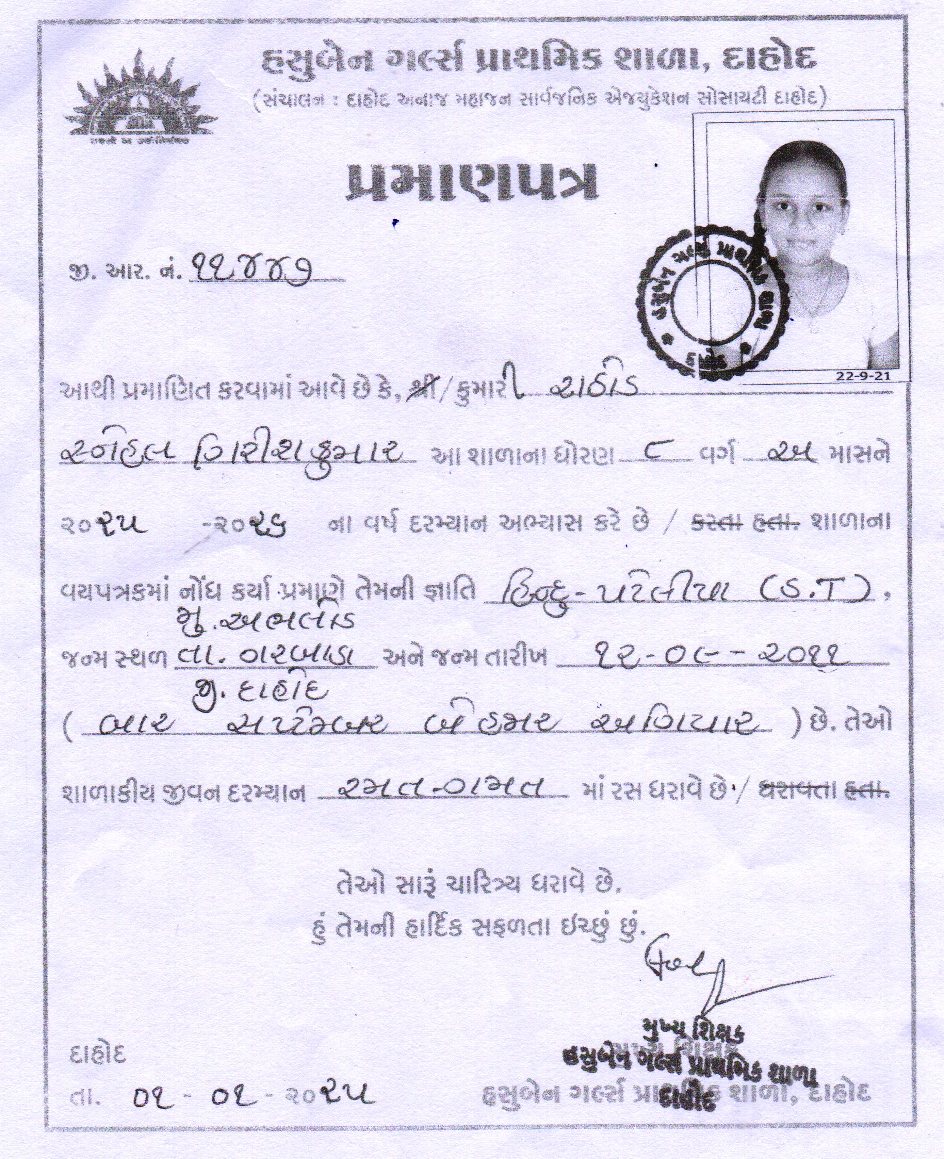 હસુબેન ગર્લ્સ પ્રાથમિક શાળા, દાહોદ
(સંચાલન : દાહોદ અનાજ મહાજન સાર્વજનિક એજયુકેશન સોસાયટી દાહોદ)
પ્રમાણપત્ર
જી. આર. નં. ૧૧૪૪૭
હસુબેન ગર્લ્સ પ્રાથમિક શાળા
દાહોદ
22-9-21
આથી પ્રમાણિત કરવામાં આવે છે કે, શ્રી/કુમારી રાઠોડ
સ્નેહલ ગિરીશકુમાર આ શાળાના ધોરણ ૮ વર્ગ અ માસને
૨૦૨૫ -૨૦૨૬ ના વર્ષ દરમ્યાન અભ્યાસ કરે છે / કરતા હતા. શાળાના
વયપત્રકમાં નોંધ કર્યા પ્રમાણે તેમની જ્ઞાતિ હિન્દુ-પટેલીયા (S.T),
મુ.અભલોડ
જન્મ સ્થળ તા. ગરબાડા અને જન્મ તારીખ ૧૨-૦૯-૨૦૧૧
જી. દાહોદ
( બાર સપ્ટેમ્બર બે હજાર અગિયાર ) છે. તેઓ
શાળાકીય જીવન દરમ્યાન રમત-ગમત માં રસ ધરાવે છે / ધરાવતા હતા.
તેઓ સારૂં ચારિત્ર્ય ધરાવે છે.
હું તેમની હાર્દિક સફળતા ઇચ્છું છું.
મુખ્ય શિક્ષક
હસુબેન ગર્લ્સ પ્રાથમિક શાળા
દાહોદ
દાહોદ
મુખ્ય શિક્ષક
તા. ૦૧ - ૦૧ - ૨૦૨૫
હસુબેન ગર્લ્સ પ્રાથમિક શાળા, દાહોદ